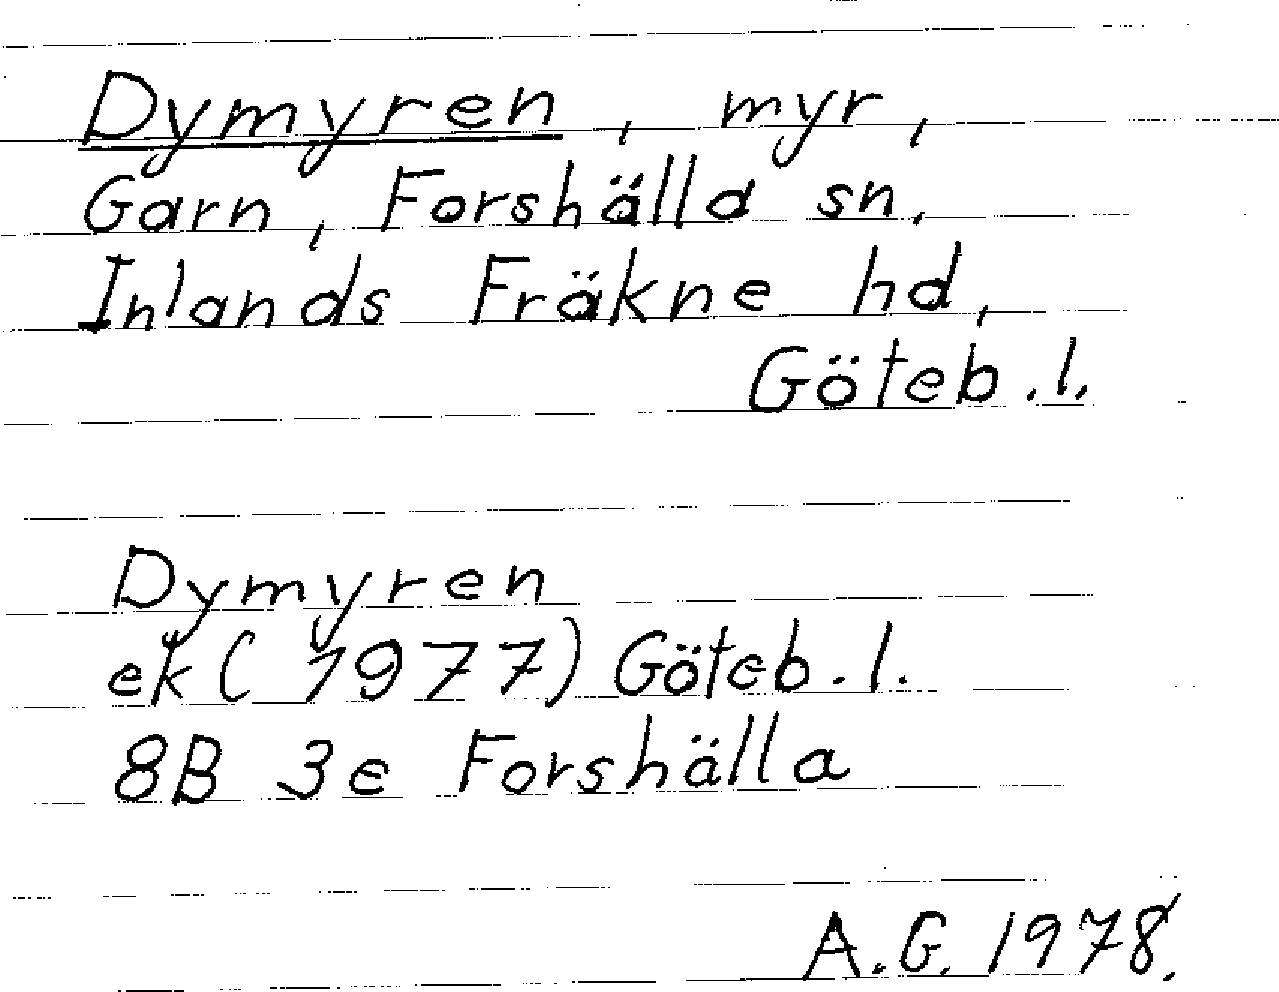 Dymyren, myr,
Garn, Forshälla sn,
Inlands Fräkne hd,
Göteb.l.
Dymyren
ek (1977) Göteb.l.
8B 3e Forshälla
A.G. 1978.